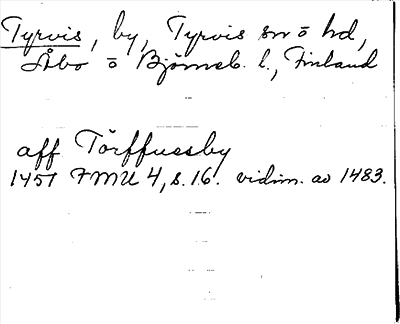 Tyrvis, by, Tyrvis sn o hd,
Åbo o Björneb. l., Finland
aff Törffuessby
1457 FMU 4, s. 16. vidim. av 1483.